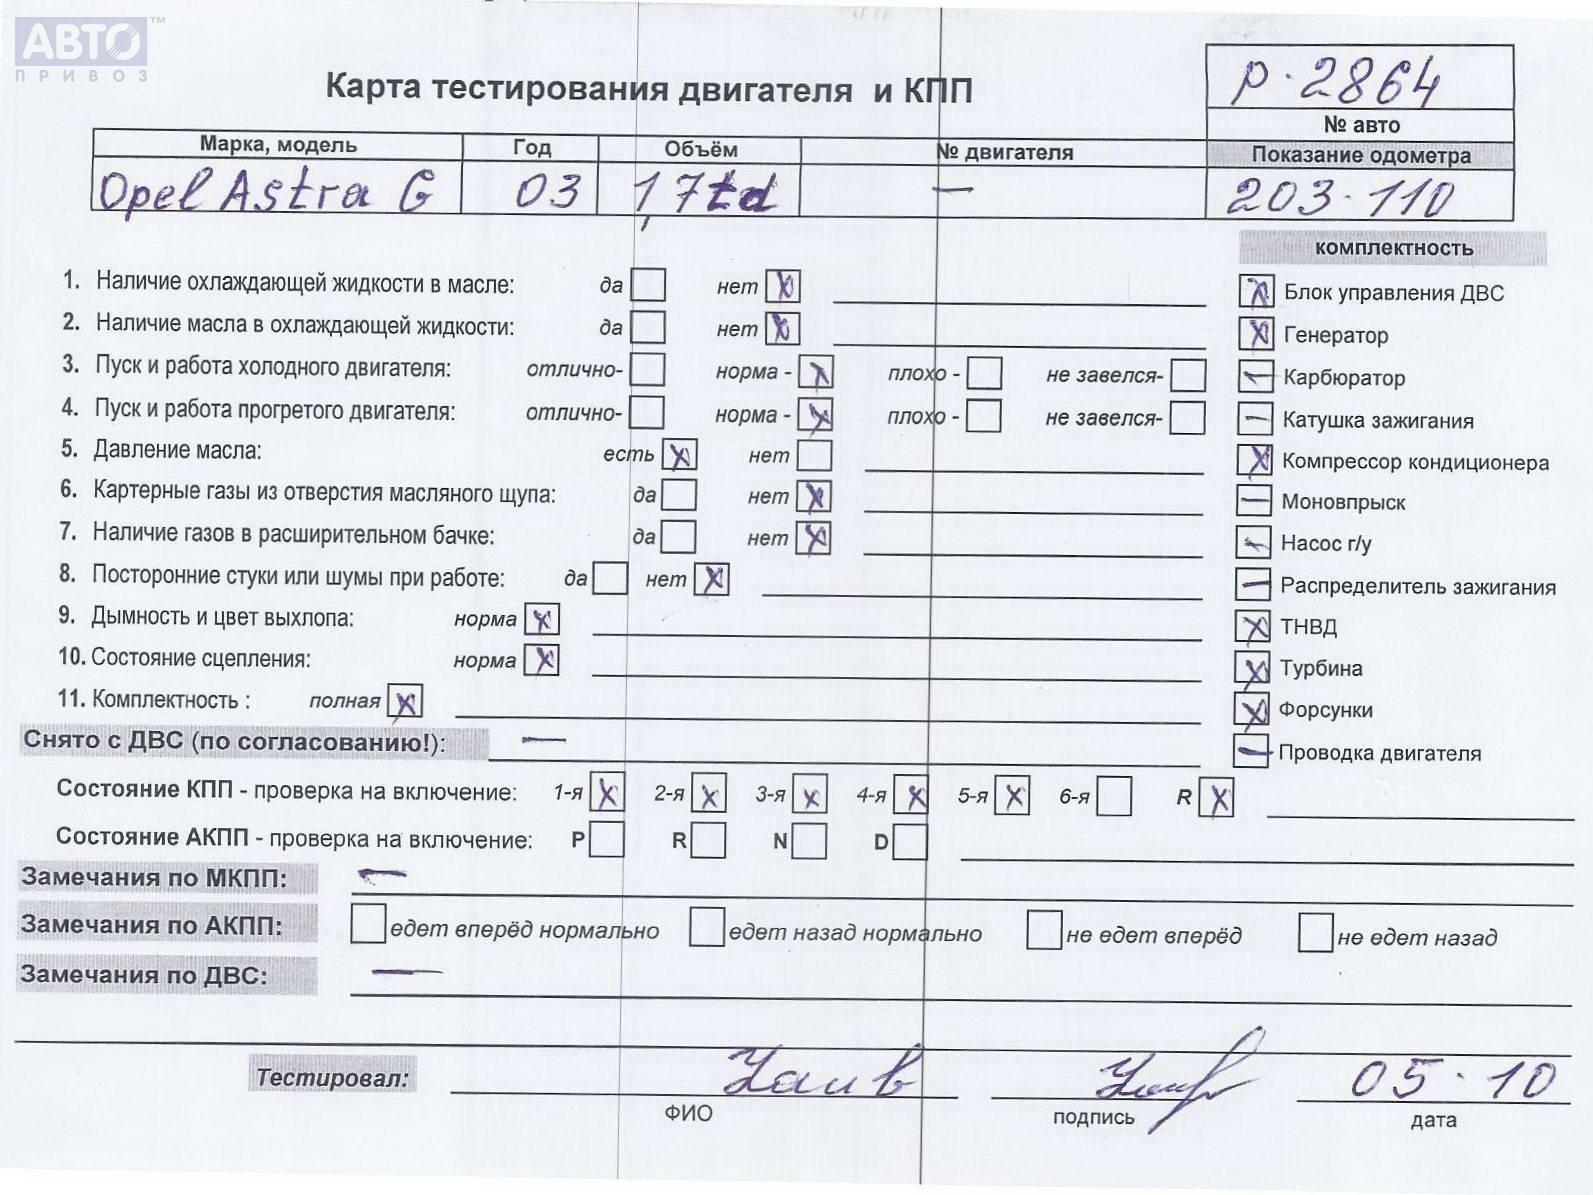 АВТО™
ПРИВОЗ
Карта тестирования двигателя и КПП
р-2864
№ авто
Марка, модель Год Объём № двигателя Показание одометра
Opel Astra G 03 1,7td — 203.110
комплектность
1. Наличие охлаждающей жидкости в масле: да нет X
2. Наличие масла в охлаждающей жидкости: да нет X
3. Пуск и работа холодного двигателя: отлично- норма - X плохо - не завелся-
4. Пуск и работа прогретого двигателя: отлично- норма - X плохо - не завелся-
5. Давление масла: есть X нет
6. Картерные газы из отверстия масляного щупа: да нет X
7. Наличие газов в расширительном бачке: да нет X
8. Посторонние стуки или шумы при работе: да нет X
9. Дымность и цвет выхлопа: норма X
10. Состояние сцепления: норма X
11. Комплектность : полная X
X Блок управления ДВС
X Генератор
— Карбюратор
— Катушка зажигания
X Компрессор кондиционера
— Моновпрыск
— Насос г/у
— Распределитель зажигания
X ТНВД
X Турбина
X Форсунки
— Проводка двигателя
Снято с ДВС (по согласованию!): —
Состояние КПП - проверка на включение: 1-я X 2-я X 3-я X 4-я X 5-я X 6-я R X
Состояние АКПП - проверка на включение: P R N D
Замечания по МКПП: —
Замечания по АКПП: едет вперёд нормально едет назад нормально не едет вперёд не едет назад
Замечания по ДВС: —
Тестировал: 05.10
ФИО подпись дата